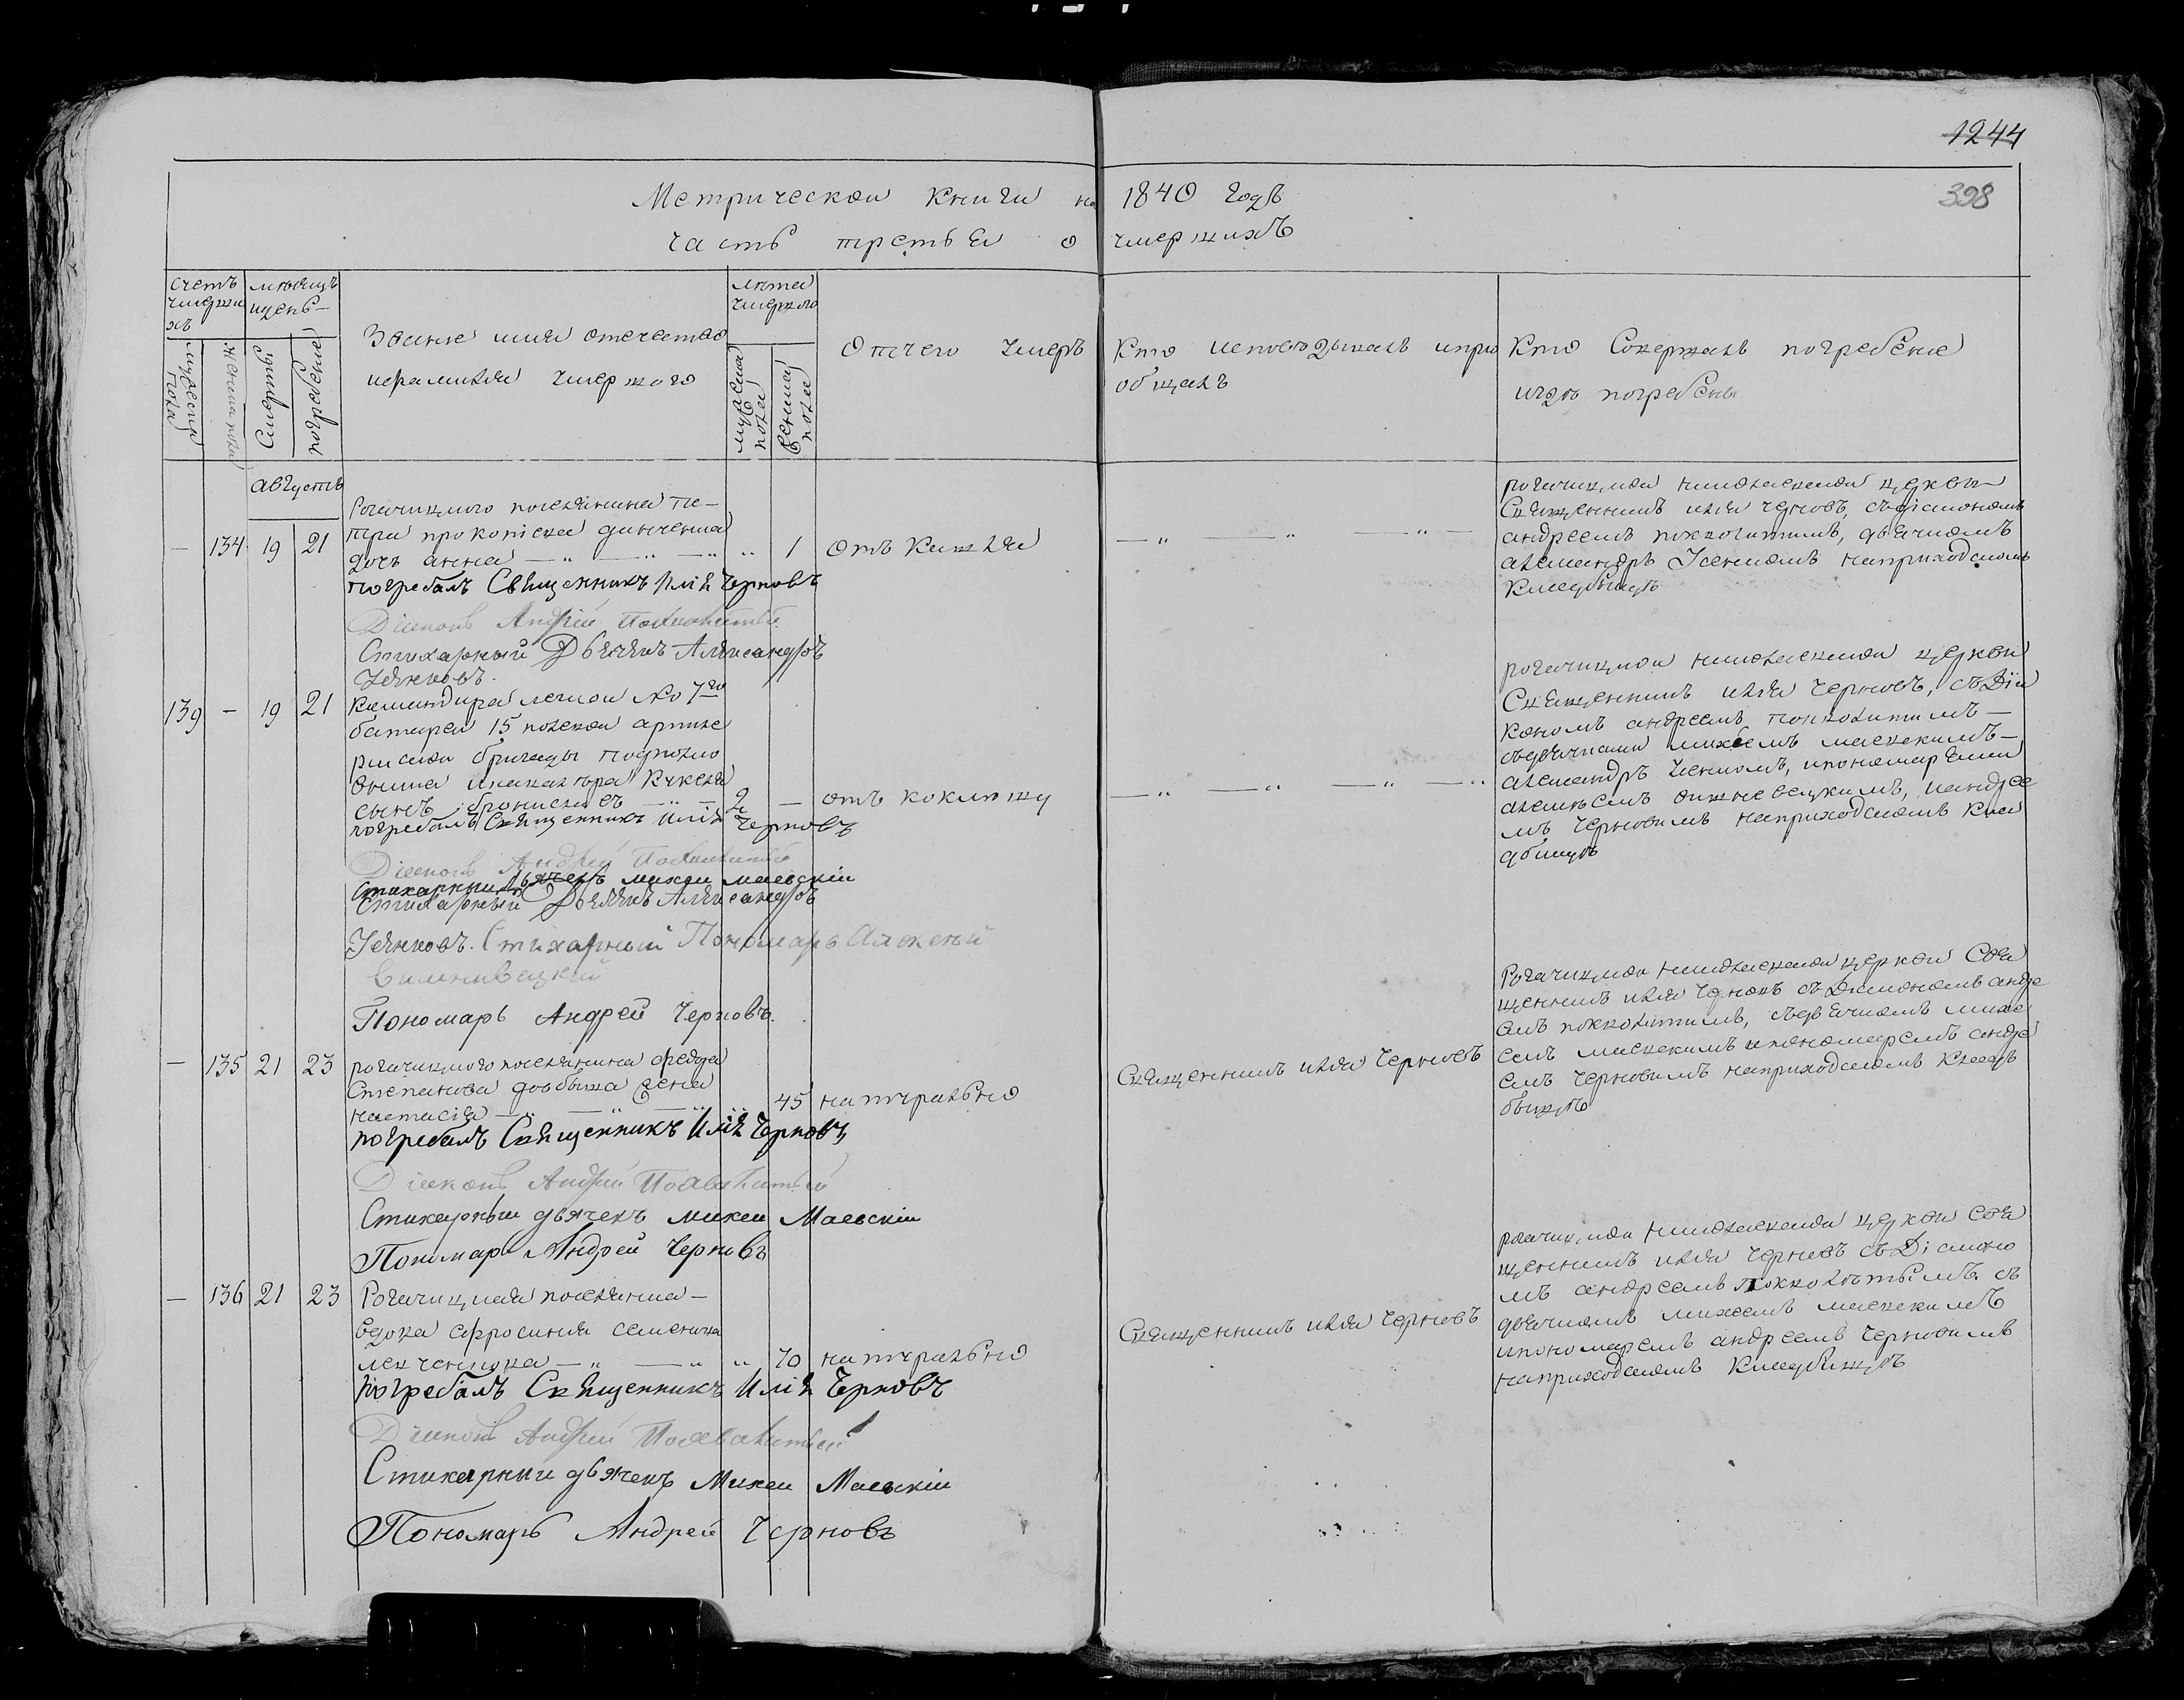 1244
398
Метрической книги на 1840 годъ
часть третья о умершихъ
счетъ умерших хъ
мужеска пола
женска пола
месяцъ и день
смерти
погребения
Звание имя отечество
и фамилия умершого
лета умершого
мужеска пола
женска пола
Отчего умеръ
Кто исповедывалъ и при
общалъ
Кто совершалъ погребение
и где погребены
августъ
— 134 19 21
Рогачицкого поселянина Пе-
тра прокопиева
дочь анна — „ — „ — „ „ 1 отъ кашля
погребалъ Священникъ Илія Черновъ
Діаконъ Андрей
Стихарный Дьячекъ Александръ
Усенковъ.
— „ — „ — „ —
рогачицкой николаевской церкви
Священникъ илия черновъ, съ діакономъ
андреемъ дьячкомъ
александръ Усенкомъ на приходскомъ
кладбище
139 — 19 21
Командира легкой № 7го
батареи 15 полевой артиле
рийской бригады подполко
вника
сынъ брониславъ — „ — 2 — отъ коклюшу
погребалъ Священникъ Илія Черновъ
Діаконъ Андрей
Стихарный дьячекъ михей маевскій
Стихарный Дьячекъ Александръ
Усенковъ. Стихарный Пономарь Алексей
Пономарь Андрей Черновъ.
— „ — „ — „ — „
рогачицкой николаевской церкви
Священникъ илия Черновъ, съ Діа
кономъ андреемъ
съ дьячками михеемъ маевскимъ —
александръ Усенкомъ, и пономарями
алексеемъ и андрее
мъ Черновымъ на приходскомъ кла
дбище
— 135 21 23
рогачицкого поселянина федора
Степанова довбыша жена
настасія — „ — „ — „ „ 45 натурально
погребалъ Священникъ Илія Черновъ
Діаконъ Андрей
Стихарный дьячекъ михей Маевскій
Пономарь Андрей Черновъ
Священникъ илия Черновъ
Рогачицкой николаевской церкви Свя
щенникъ илия Черновъ съ Діакономъ андре
емъ съ дьячкомъ михе
емъ маевскимъ и пономаремъ андре
емъ Черновымъ на приходскомъ кладъ
бище
— 136 21 23
Рогачицкая поселянка —
вдова ефросиния семенова
— „ — „ „ 70 натурально
погребалъ Священникъ Илія Черновъ
Діаконъ Андрей
Стихарный дьячекъ Михей Маевскій
Пономарь Андрей Черновъ
Священникъ илия Черновъ
рогачицкой николаевской церкви Свя
щенникъ илия Черновъ съ Діаконо
мъ андреемъ съ
дьячкомъ михеемъ маевскимъ
и пономаремъ андреемъ Черновымъ
на приходскомъ кладбище